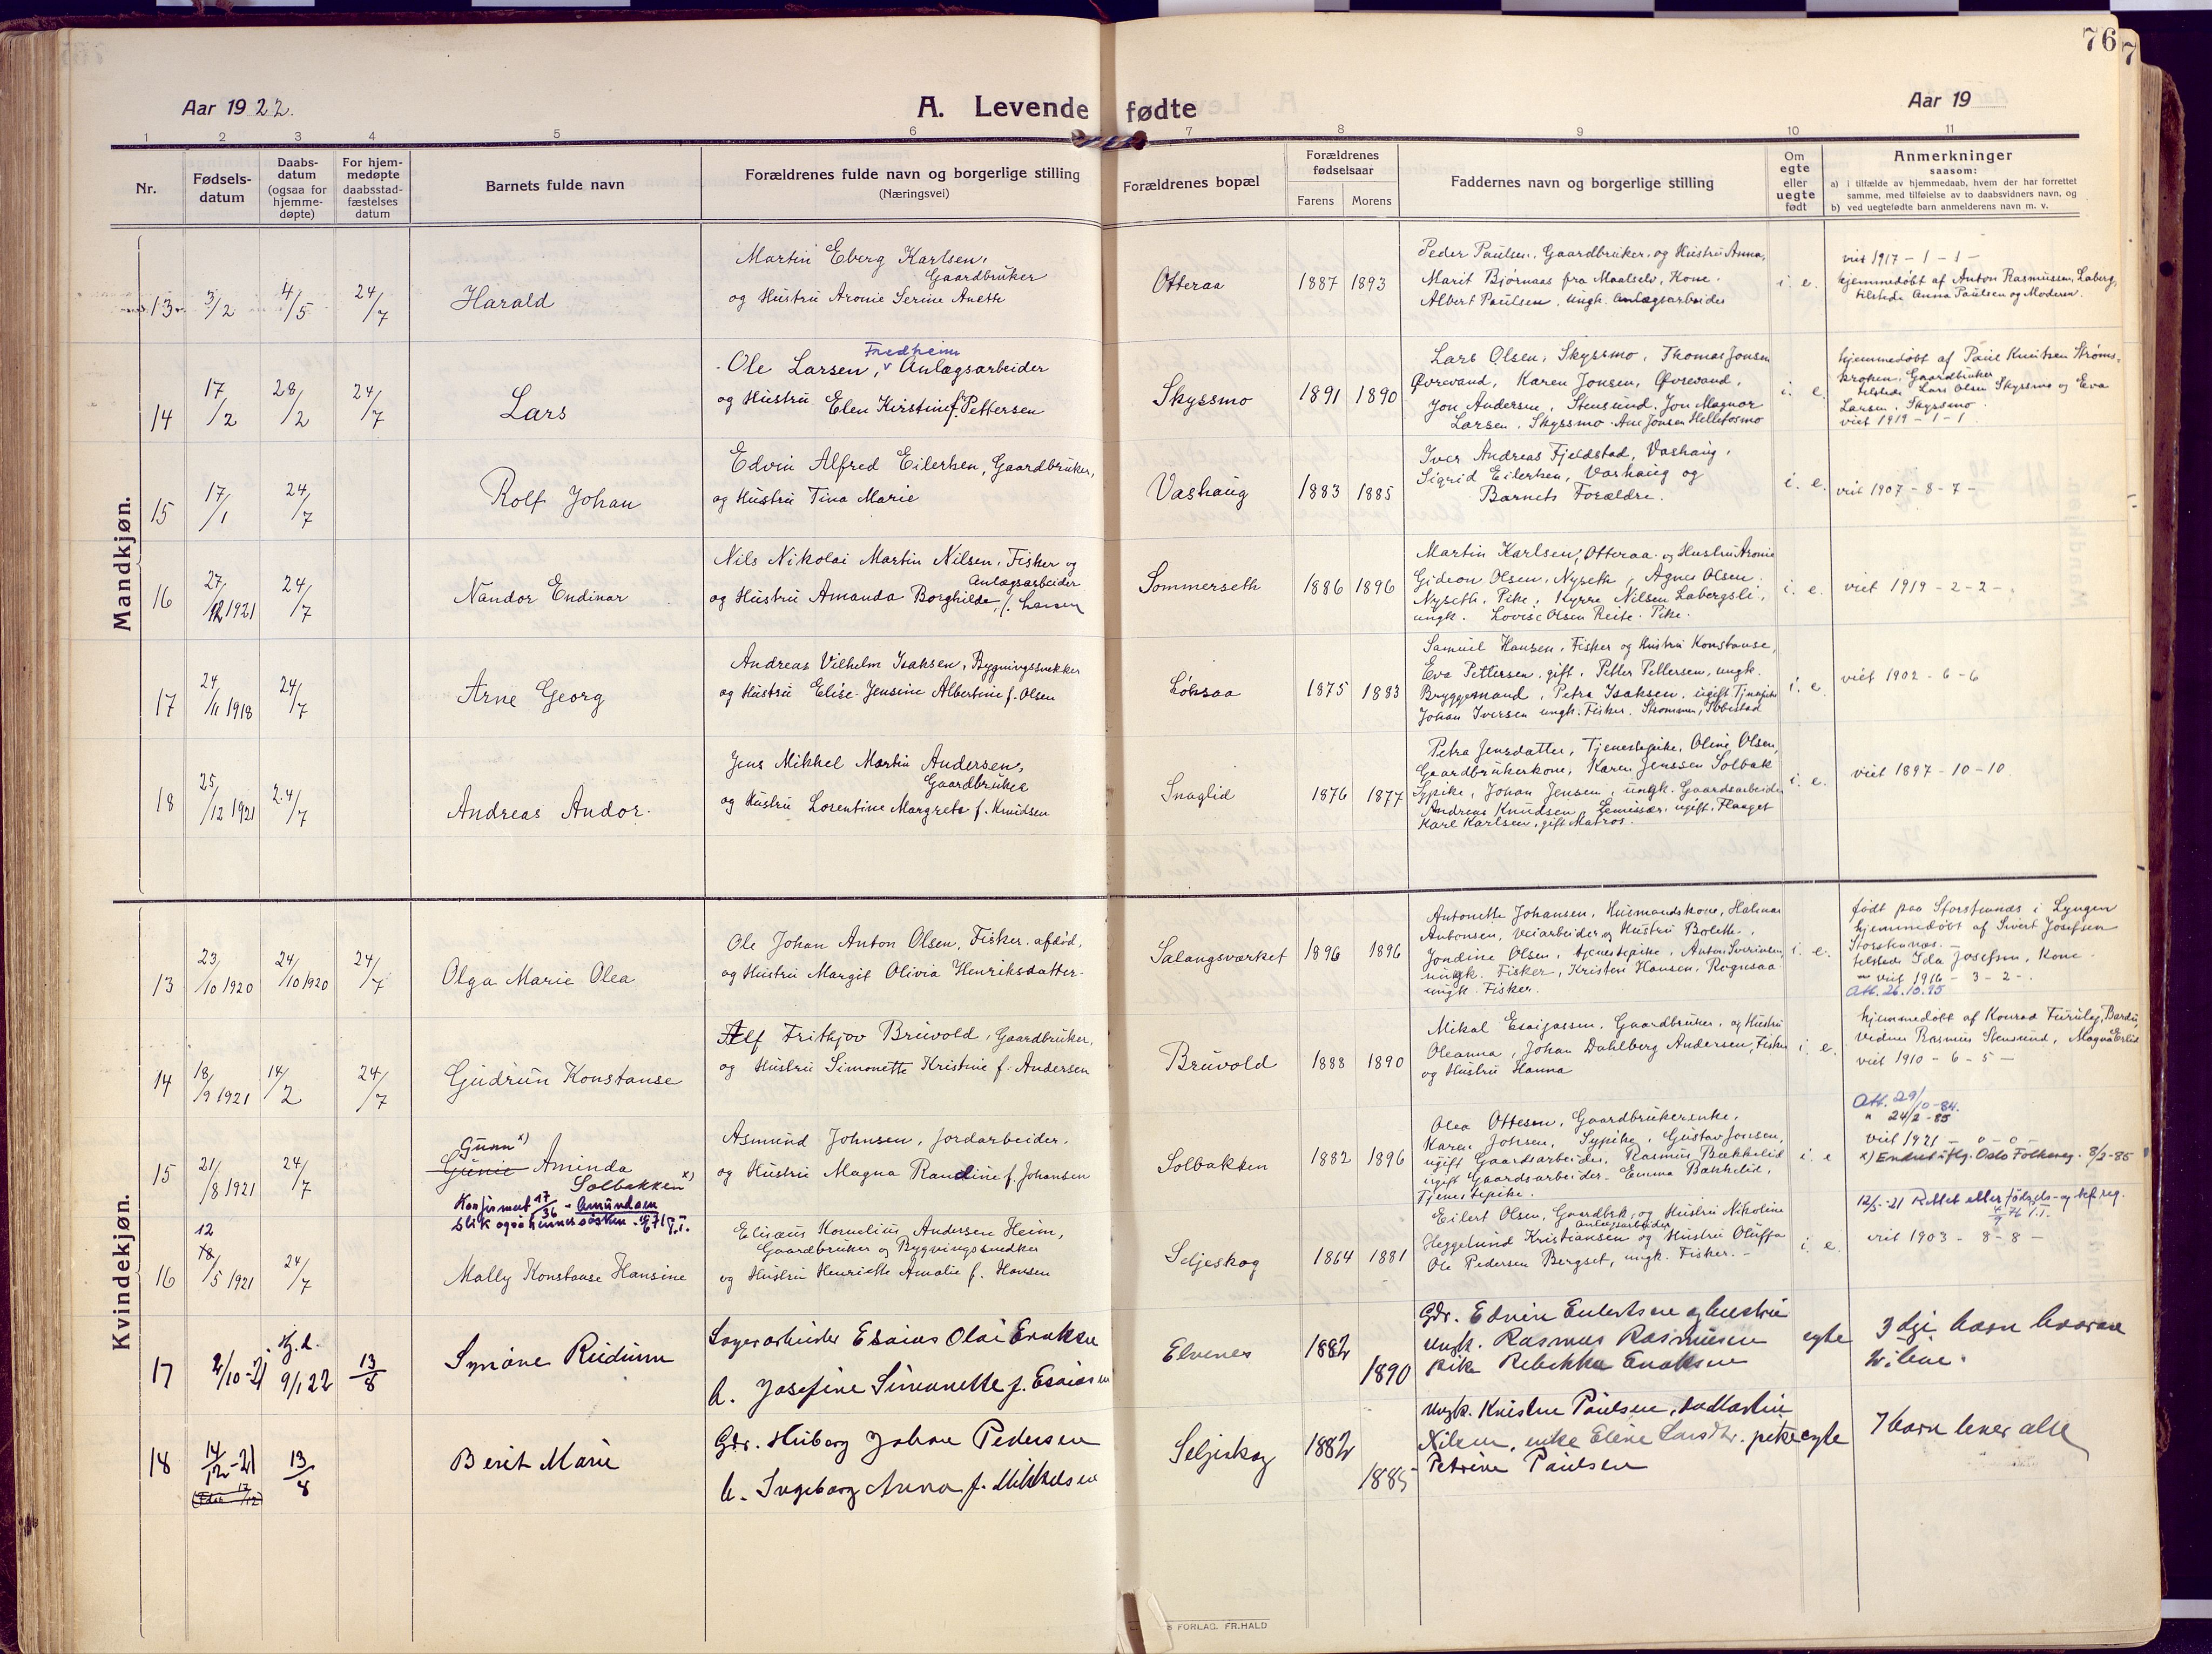 76
7
Aar 1922.
A. Levende fødte
Aar 19
1 2 3 4 5 6 7 8 9 10 11
Nr.
Fødsels-
datum
Daabs-
datum
(ogsaa for
hjemme-
døpte)
For hjem-
medøpte
daabsstad-
fæstelses
datum
Barnets fulde navn
Forældrenes fulde navn og borgerlige stilling
(Næringsvei)
Forældrenes bopæl
Forældrenes
fødselsaar
Farens Morens
Faddernes navn og borgerlige stilling
Om
egte
eller
uegte
født
Anmerkninger
saasom:
a) i tilfælde av hjemmedaab, hvem der har forrettet
samme, med tilføielse av to daabsvidners navn, og
b) ved uegtefødte barn anmelderens navn m. v.
Mandkjøn.
13 3/2 4/5 24/7
Harald
Martin Eberg Karlsen,
Gaardbruker
og Hustru Aronie Serine Aneth
Otteraa
1887 1893
Peder Paulsen, Gaardbruker, og Hustru Anna,
Marit Bjørnaas fra Maalselv, Kone.
Albert Paulsen, ungk. Anlægsarbeider
i. e.
viet 1917 - 1 - 1 -
hjemmedøbt af Anton Rasmussen, Laberg,
tilstede Anna Paulsen og Moderen.
14 17/2 28/2 24/7
Lars
Fredheim
Ole Larsen, v Anlægsarbeider
og Hustru Elen Kirstine f. Pettersen
Skyssmo
1891 1890
Lars Olsen, Skyssmo, Thomas Jonsen
Øvrevand, Karen Jonsen, Øvrevand,
Jon Andersen, Stensund, Jon Magnar
Larsen, Skyssmo. Ane Jonsen Hellefosmo
i. e.
hjemmedøbt af Paul Knutsen Strøms-
kroken, Gaardbruker
tilstede Lars Olsen Skyssmo og Eva
Larsen, Skyssmo.
viet 1919 - 1 - 1
15 17/1 24/7
Rolf Johan
Edvin Alfred Eilertsen, Gaardbruker,
og Hustru Tina Marie
Vashaug
1883 1885
Iver Andreas Fjeldstad, Vashaug,
Sigrid Eilertsen, Vashaug og
Barnets Forældre.
i. e.
viet 1907 - 8 - 7 -
16 27/12 1921 24/7
Nandor Endinar
Nils Nikolai Martin Nilsen, Fisker og
Anlægsarbeider
og Hustru Amanda Borghilde f. Larsen
Sommerseth
1886 1896
Martin Karlsen, Otteraa og Hustru Aronie
Gideon Olsen, Nyseth, Agnes Olsen
Nyseth, Pike, Kyrre Nilsen Labergsli,
ungk. Lovise Olsen Reite. Pike.
i. e.
viet 1919 - 2 - 2 -
17 24/11 1918 24/7
Arne Georg
Andreas Vilhelm Isaksen, Bygningssnekker
og Hustru Elise Jensine Albertine f. Olsen
Løksaa
1875 1883
Samuel Hansen, Fisker og Hustru Konstanse,
Eva Pettersen, gift, Petter Pettersen, ungk.
Bryggemand, Petra Isaksen, ugift Tjpike
Johan Iversen ungk. Fisker. Strømmen, Ibbestad
i. e.
viet 1902 - 6 - 6
18 25/12 1921 24/7
Andreas Andor.
Jens Mikkel Martin Andersen,
Gaardbruker
og Hustru Losentine Margrete f. Knudsen
Snaglid
1876 1877
Petra Jensdatter, Tjenestepike, Oline Olsen,
Gaardbrukerkone, Karen Jenssen Solbak
Sypike, Johan Jensen, ungk. Gaardsarbeider
Andreas Knudsen Emissær, ugift, Flaaget
Karl Karlsen, gift Matros.
i. e.
viet 1897 - 10 - 10
Kvindekjøn.
13 23/10 1920 24/10 1920 24/7
Olga Marie Olea
Ole Johan Anton Olsen, Fisker, afdød,
og Hustru Margit Olivia Henriksdatter
Salangsværket
1896 1896
Antonette Johansen, Husmandskone, Halmar
Antonsen, Veiarbeider og Hustru Bolette,
Jondine Olsen, tjenestepike, Anton Sverinsen
ungk. Fisker, Kristen Hansen, Rognsaa
ungk. Fisker.
i. e.
født paa Storstennæs i Lyngen
hjemmedøbt af Sivert Josefsen
Storstennæs.
tilstede Ida Josefsen, Kone
viet 1916 - 3 - 2 -
Att. 26.10.95
14 18/9 1921 14/2 24/7
Gudrun Konstanse
Alf Fritkjov Bruvold, Gaardbruker,
og Hustru Simonette Kristine f. Andersen
Bruvold
1888 1890
Mikal Esaijassen, Gaardbruker, og Hustru
Oleanna, Johan Dahlberg Andersen, Fisker
og Hustru Hanna
i. e.
hjemmedøbt af Konrad Furuly, Bardu,
vidner Rasmus Stensund, Magna Erlid
viet 1910 - 6 - 5 -
15 21/8 1921 24/7
Gunn x)
Gunie Aminda
Solbakken x)
Konfirmert 17/36 - Amundsen
slik også hennes søsken. 8/71 I.I.
Asmund Johnsen, Jordarbeider.
og Hustru Magna Randine f. Johansen
Solbakken
1882 1896
Olea Ottesen, Gaardbrukerenke,
Karen Johsen, Sypike, Gustav Jonsen,
ugift Gaardsarbeider, Rasmus Bakkelid
ugift Gaardsarbeider. Emma Bakkelid,
Tjenestepike.
i. e
Att. 29/10-84.
" 24/2-85
viet 1921 - 0 - 0 -
x) Endret iflg. Oslo Folkereg. 8/2-85
16 12 18/5 1921 24/7
Mally Konstanse Hansine
Elisæus Kornelius Andersen Heim,
Gaardbruker og Bygningssnedker
og Hustru Henriette Amalie f. Hansen
Seljeskog
1864 1881
Eilert Olsen, Gaardbrk, og Hustru Nikoline
Anlægsarbeider
Heggelund Kristiansen og Hustru Oluffa
Ole Pedersen Bergset, ungk. Fisker. -
i. e.
12/5-21 Rettet etter fødsels- og kf. reg.
4/9 76 I.I.
viet 1903 - 8 - 8 -
17 2/10-21 Hj.d. 9/1 22 13/8
Synöve Ruduun
Lagerarbeider Esaias Olai Enoksen
h. Josefine Simonette f. Esaiassen
Elvenes
1882
1890
Gdr. Edvin Eulertsen og hustru
Ungk. Rasmus Rasmusen
pike Rebekka Enoksen
egte
3 dje barn hvorav
2 i live.
18 14/12-21 13/8
Berit Marie
Gdr. Huborg Johan Pedersen
h. Ingeborg Anna f. Mikkelsen
Seljeskog
1882
1885
Ungk. Kristen Paulsen,
Nilsen, enke Eline Larsdtr. pike
Petrine Paulsen
egte
7 barn lever alle
S FORLAG. FR.HALD